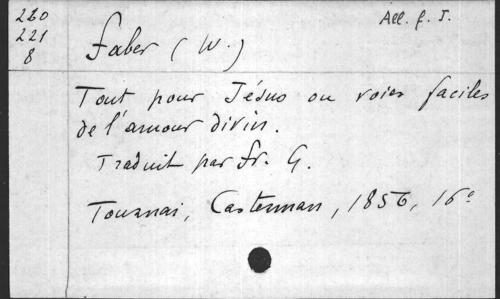 220 All. g. I.
221
8 Faber (W.)
Tout pour Jésus ou voies faciles
de l'amour divin.
Traduit par Fr. G.
Tournai, Casterman, 1856, 16°